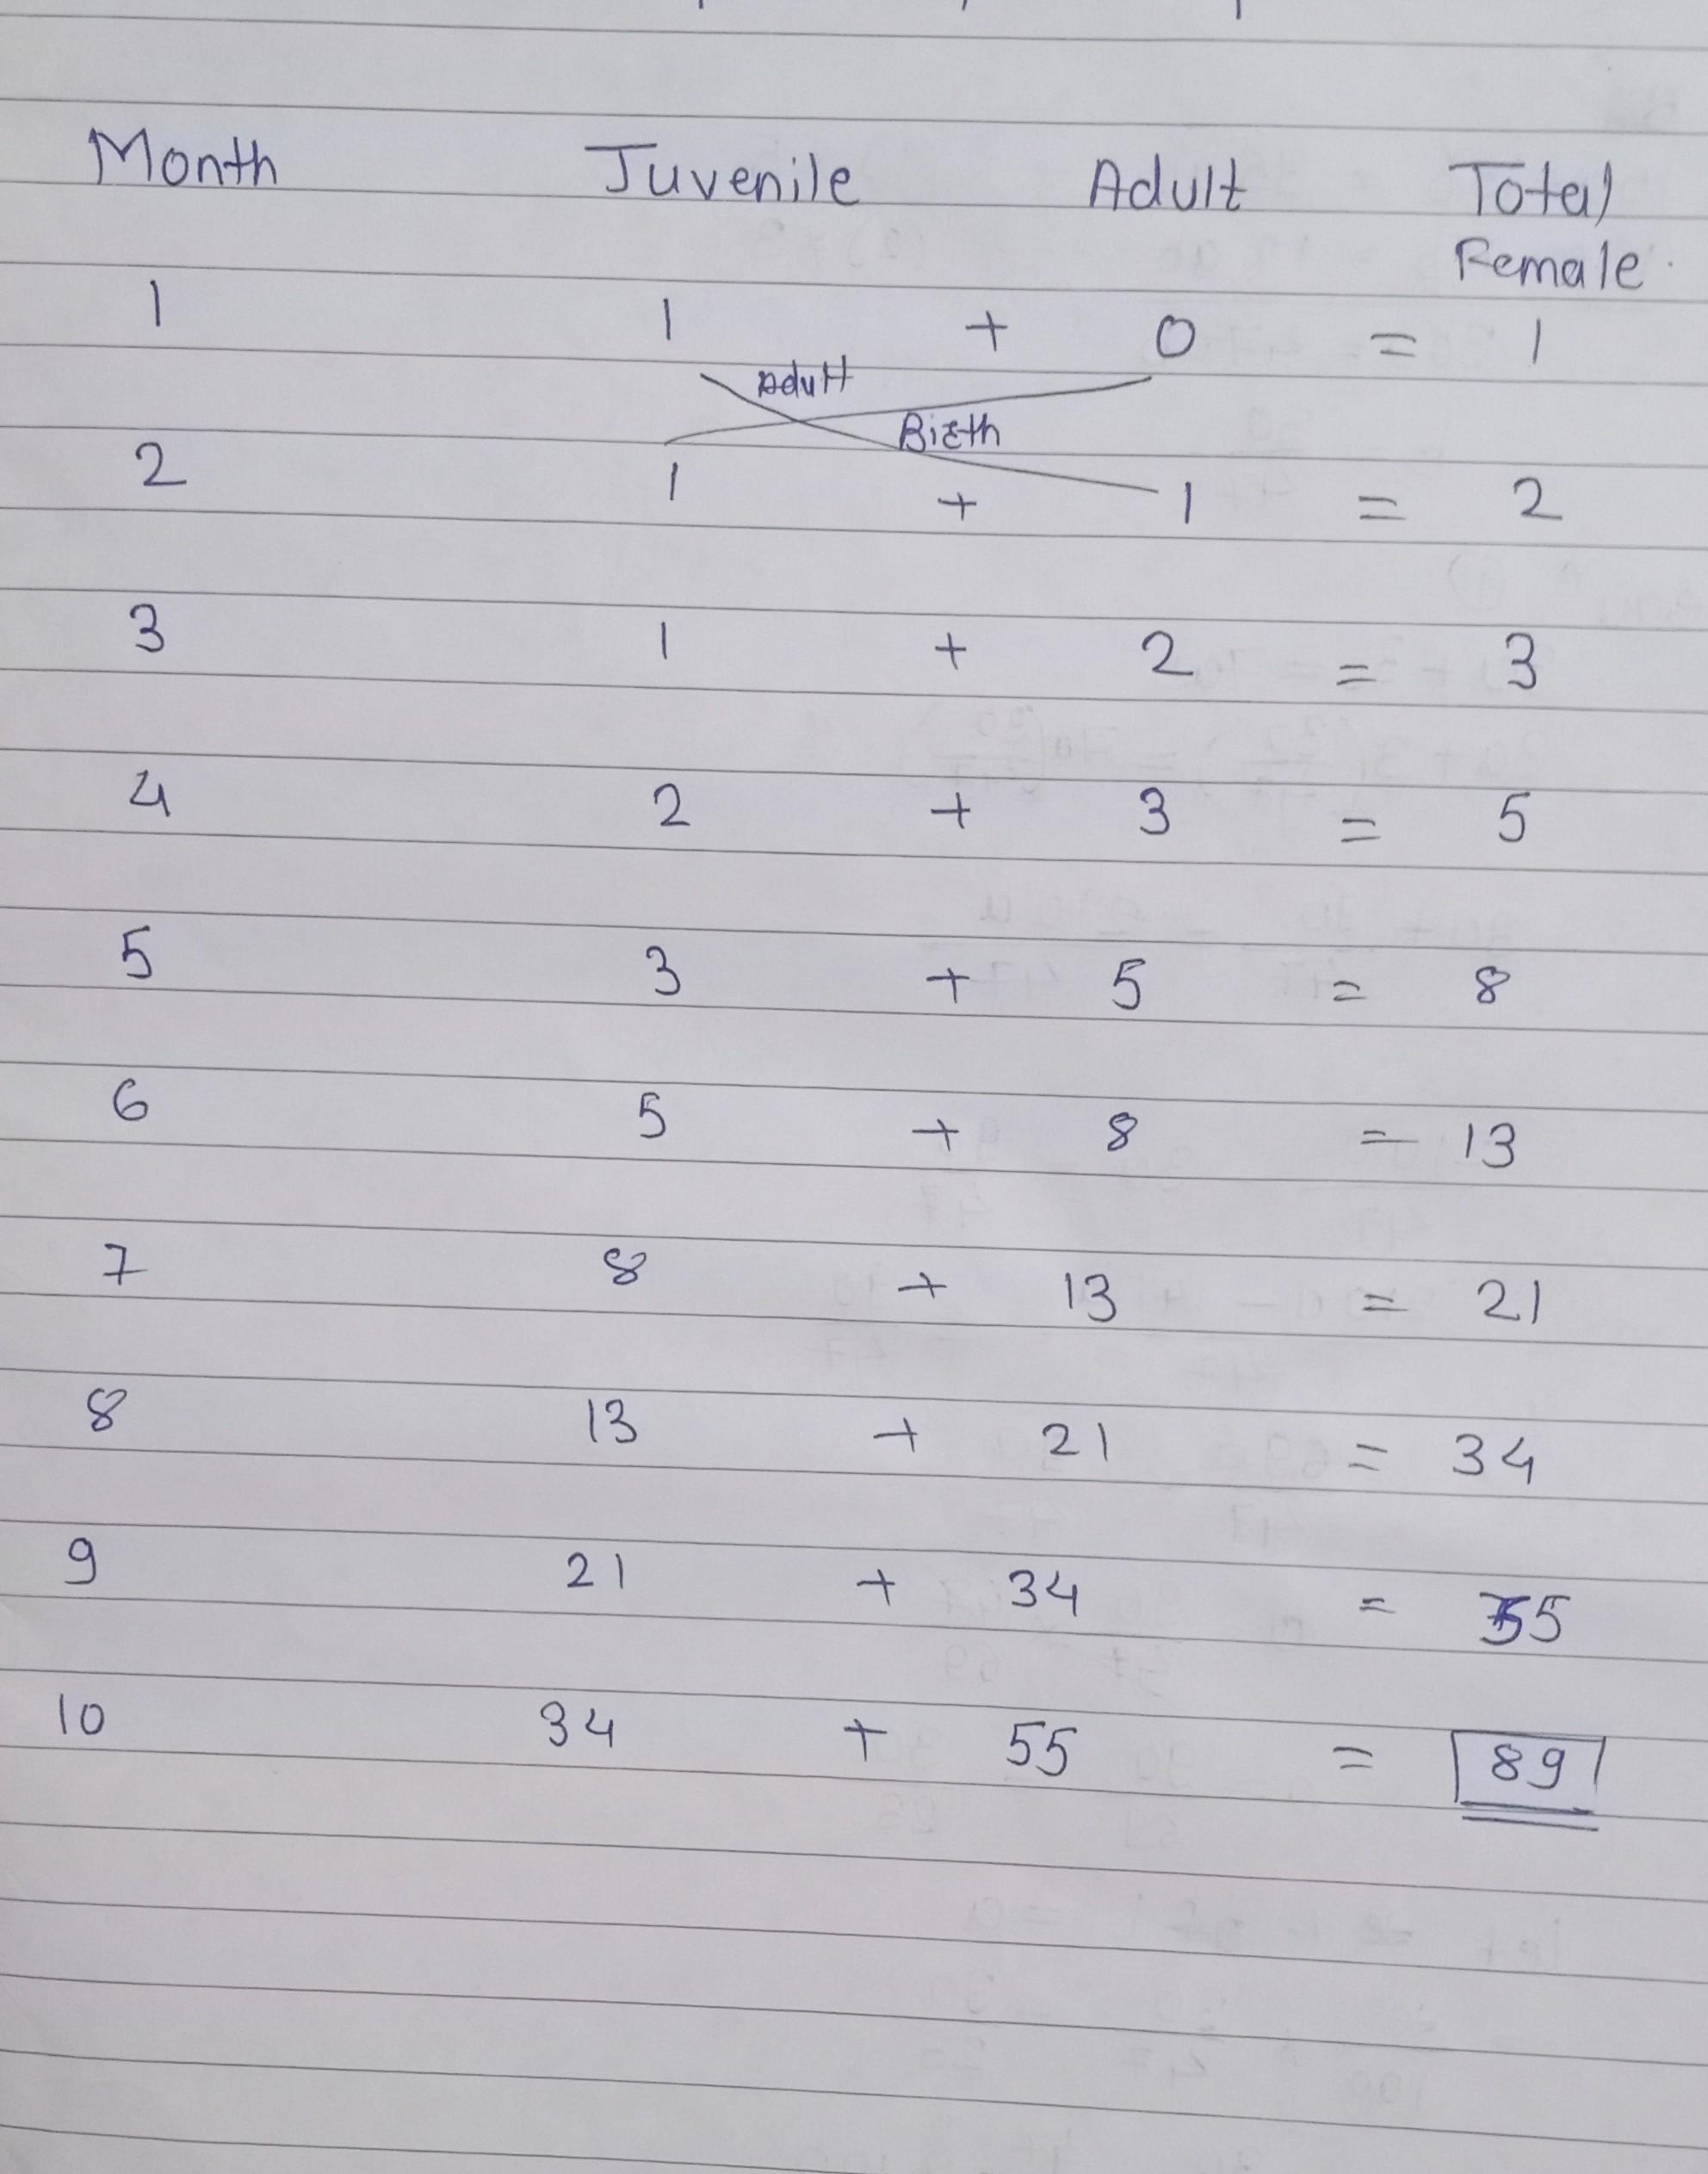 Month Juvenile Adult Total
Female.
1 1 + 0 = 1
Adult
Birth
2 1 + 1 = 2
3 1 + 2 = 3
4 2 + 3 = 5
5 3 + 5 = 8
6 5 + 8 = 13
7 8 + 13 = 21
8 13 + 21 = 34
9 21 + 34 = 55
10 34 + 55 = 89